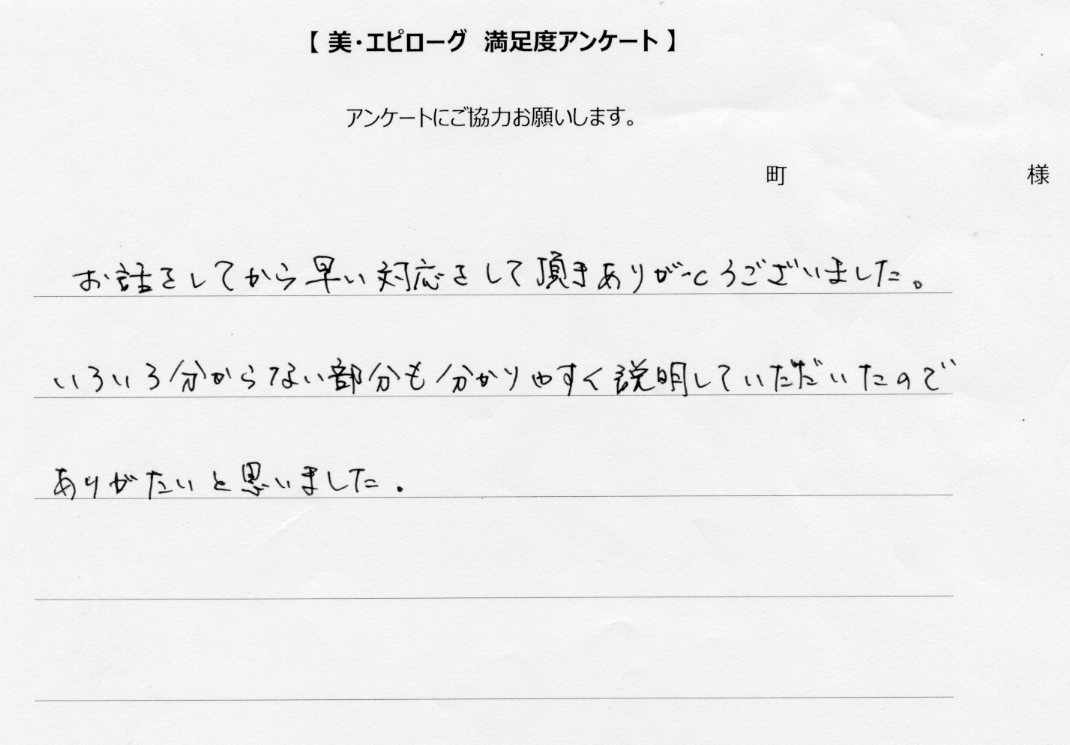 【 美・エピローグ 満足度アンケート 】
アンケートにご協力お願いします。
町 様
お話をしてから早い対応をして頂きありがとうございました。
いろいろ分からない部分も分かりやすく説明していただいたので
ありがたいと思いました。